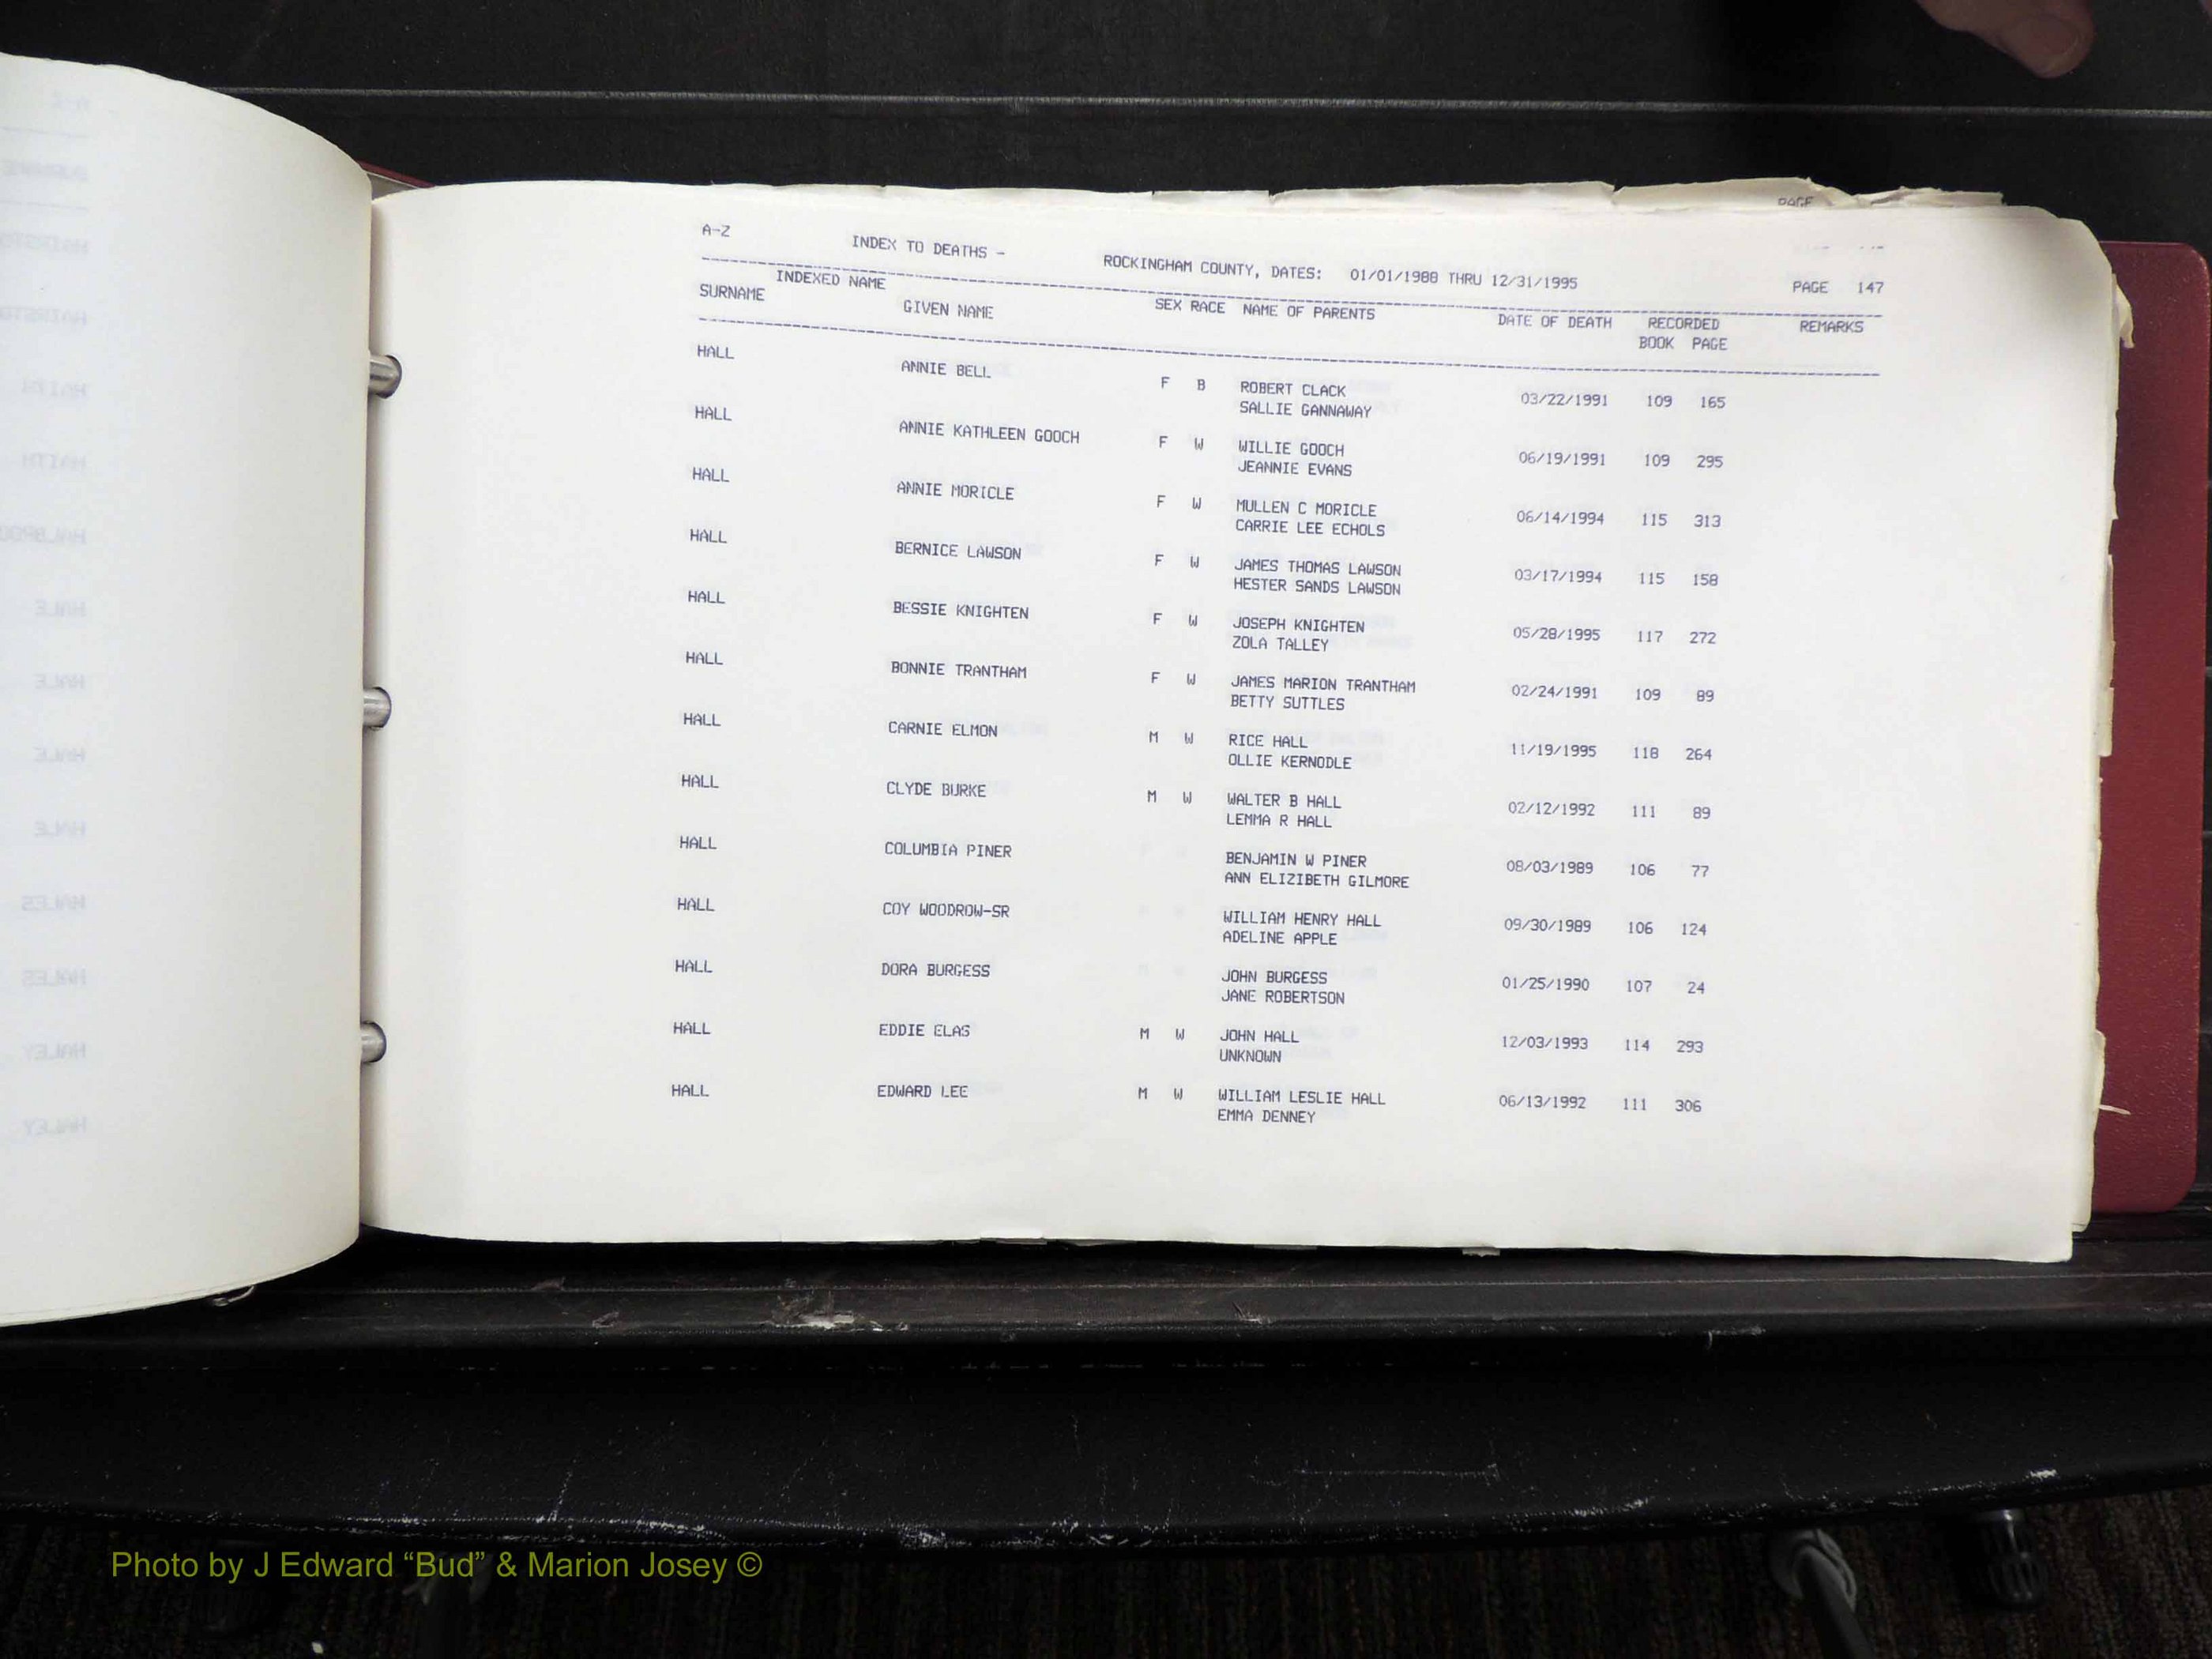 PAGE
A-Z INDEX TO DEATHS - ROCKINGHAM COUNTY, DATES: 01/01/1988 THRU 12/31/1995 PAGE 147
INDEXED NAME
SURNAME GIVEN NAME SEX RACE NAME OF PARENTS DATE OF DEATH RECORDED REMARKS
BOOK PAGE
HALL ANNIE BELL F B ROBERT CLACK 03/22/1991 109 165
SALLIE GANNAWAY
HALL ANNIE KATHLEEN GOOCH F W WILLIE GOOCH 06/19/1991 109 295
JEANNIE EVANS
HALL ANNIE MORICLE F W MULLEN C MORICLE 06/14/1994 115 313
CARRIE LEE ECHOLS
HALL BERNICE LAWSON F W JAMES THOMAS LAWSON 03/17/1994 115 158
HESTER SANDS LAWSON
HALL BESSIE KNIGHTEN F W JOSEPH KNIGHTEN 05/28/1995 117 272
ZOLA TALLEY
HALL BONNIE TRANTHAM F W JAMES MARION TRANTHAM 02/24/1991 109 89
BETTY SUTTLES
HALL CARNIE ELMON M W RICE HALL 11/19/1995 118 264
OLLIE KERNODLE
HALL CLYDE BURKE M W WALTER B HALL 02/12/1992 111 89
LEMMA R HALL
HALL COLUMBIA PINER BENJAMIN W PINER 08/03/1989 106 77
ANN ELIZIBETH GILMORE
HALL COY WOODROW-SR WILLIAM HENRY HALL 09/30/1989 106 124
ADELINE APPLE
HALL DORA BURGESS JOHN BURGESS 01/25/1990 107 24
JANE ROBERTSON
HALL EDDIE ELAS M W JOHN HALL 12/03/1993 114 293
UNKNOWN
HALL EDWARD LEE M W WILLIAM LESLIE HALL 06/13/1992 111 306
EMMA DENNEY
Photo by J Edward “Bud” & Marion Josey ©